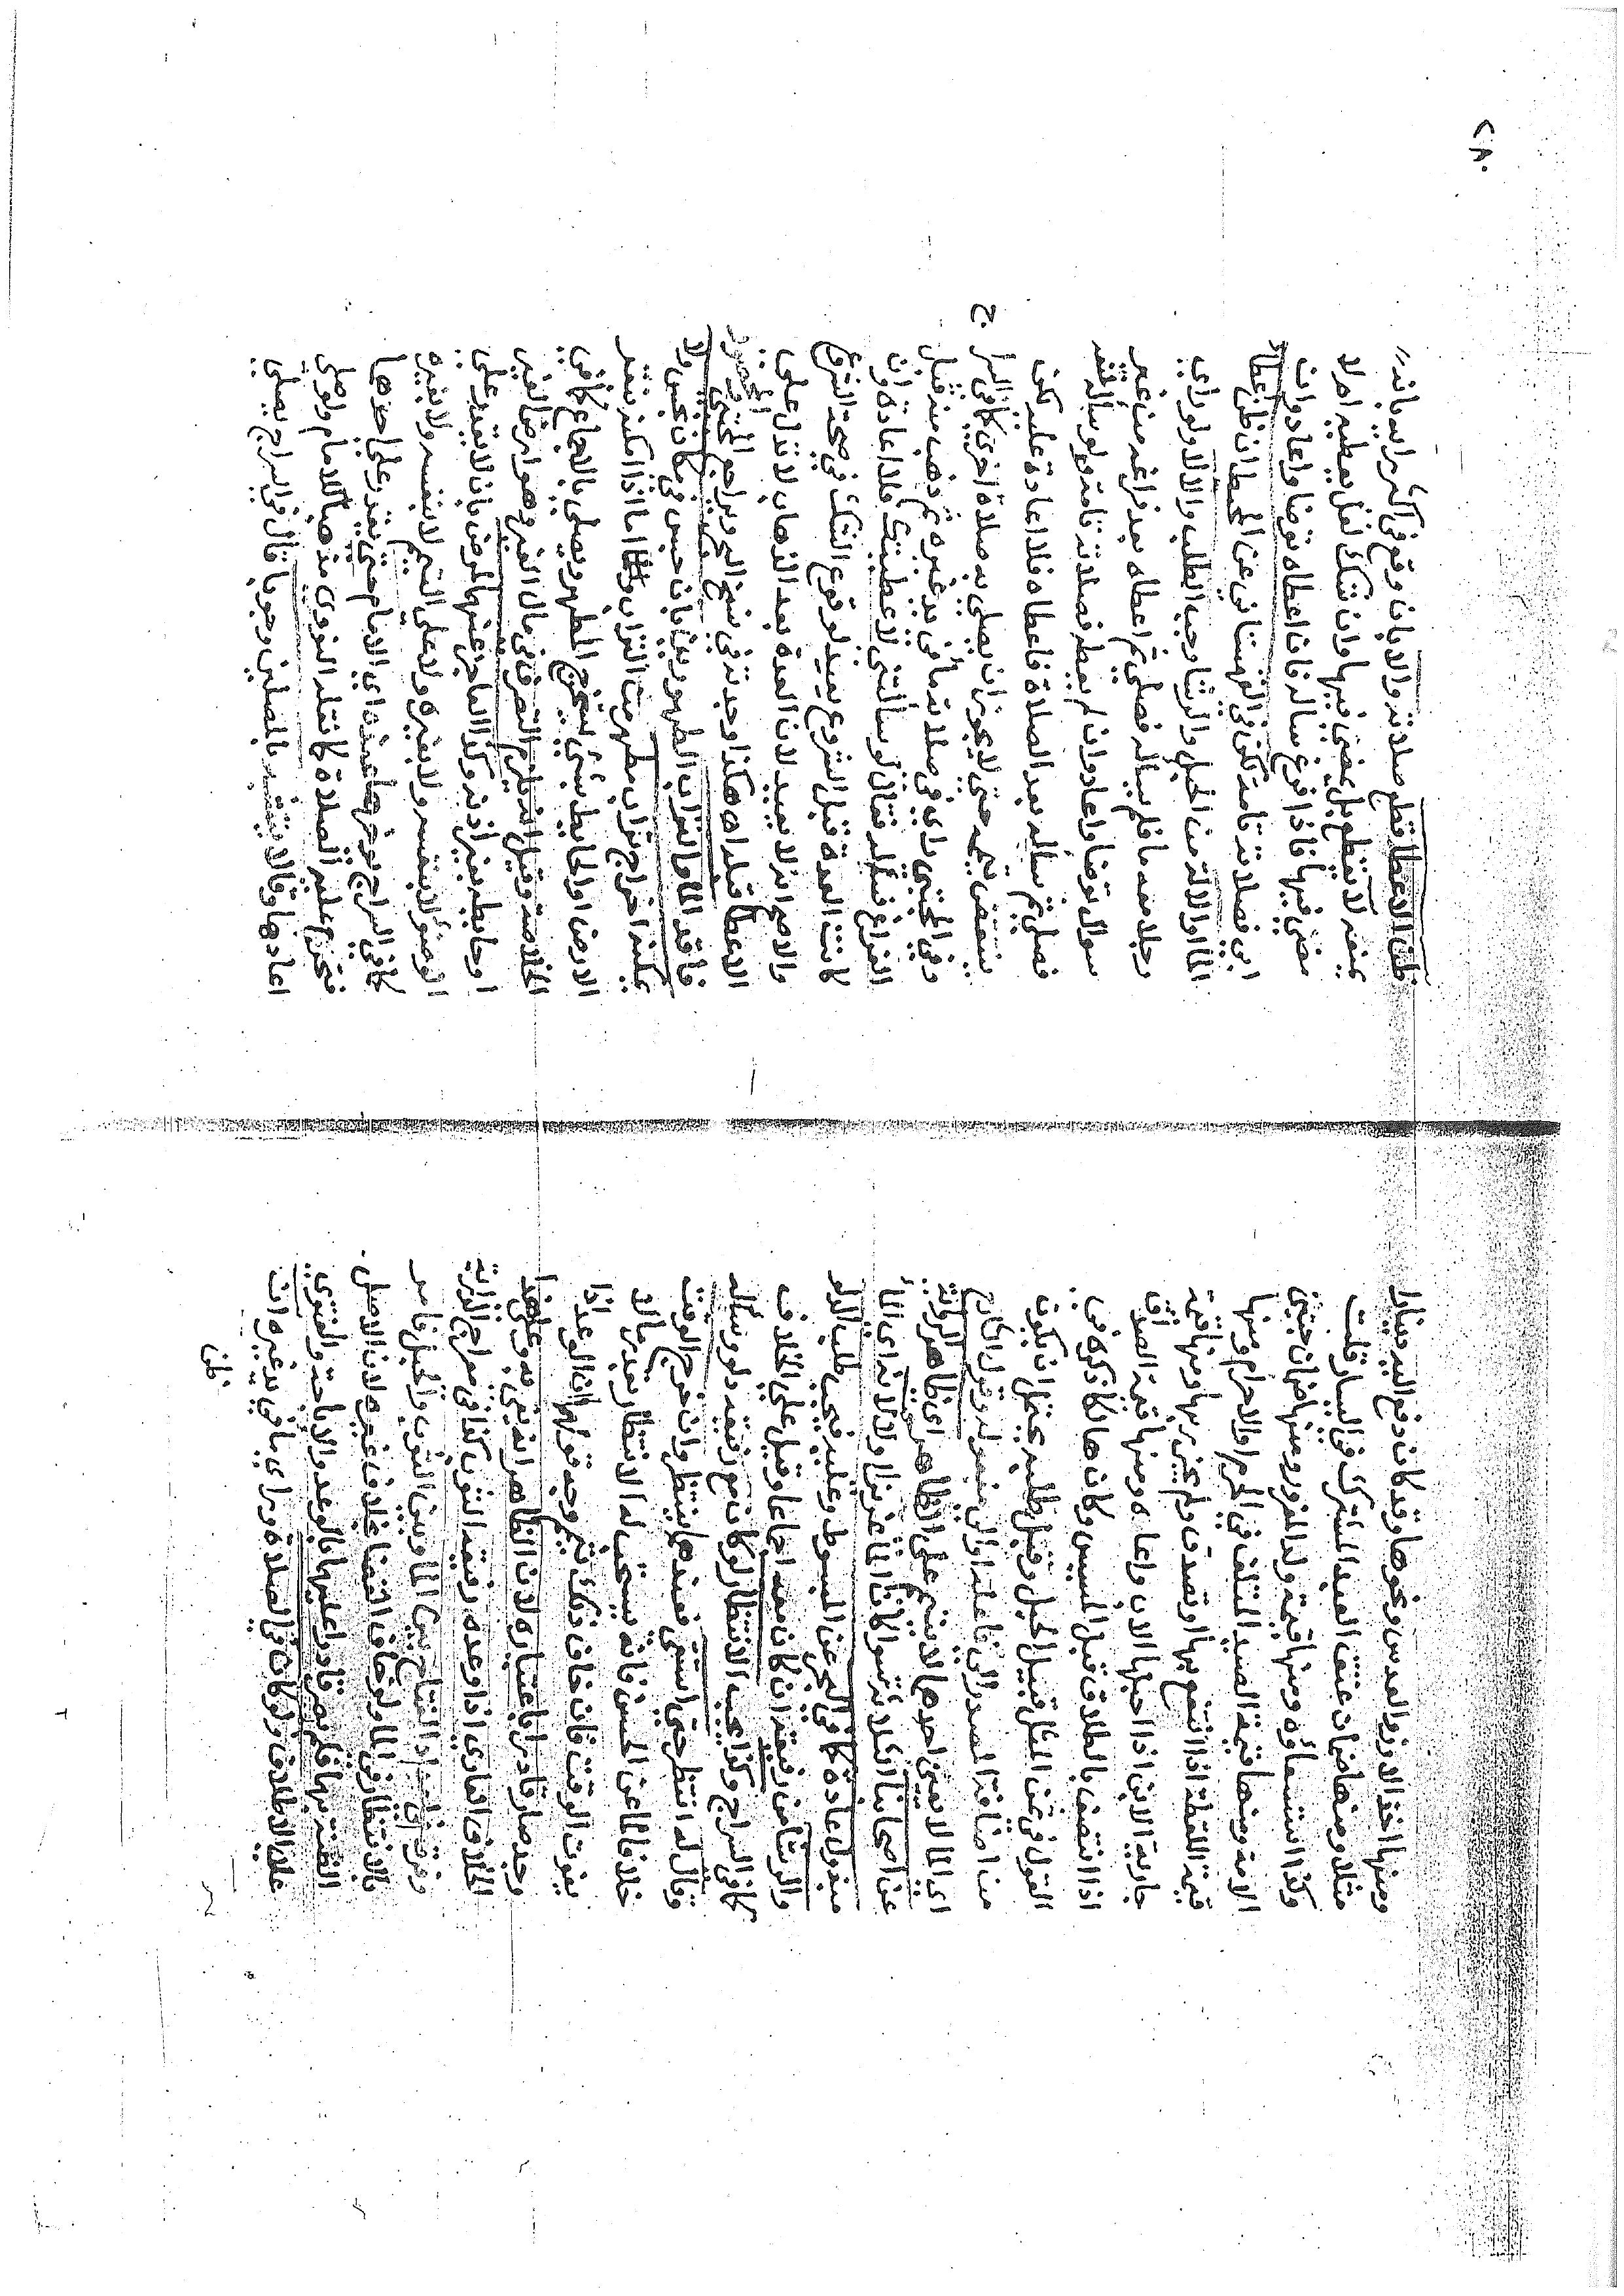 ومنها اخذ الارز والعدس ونحوها وقد كان دفع اليه دينار
مثلا ومنها ضمان عتق العبد المشترك في اليسار قلت
وكذا استسعاؤه ومنها قيمة ولد المغرور ومنها ضمان جنين
الامة ومنها قيمة الصيد المتلف في الحرم والاحرام ومنها
قيمة اللقطة اذا انتفع بها او تصدق ولم يجز ربها ومنها قيمة
جارية الابن اذا احبلها الاب وادعاه ومنها قيمة الصداق
اذا انتصف بالطلاق قبل المسيس وكان هالكا ذكره في
القول في ثمن المثل قبيل الحبل وقبل طلبه يحتمل ان يكون
من اضافة المصدر الى فاعله او الى مفعوله وقول الكلام
اي الماء لا يتمم احدهم لا يتمم على الظاهر اي ظاهر الرواية
عن اصحابنا الثلاثة سواء كان الماء عزيزا اولا لانه اي الماء
مبذول عادة كما في البحر عن المبسوط وعليه فيجب طلب الدلو
والرشا من رفيقه ان كان معه اجماعا وقيل على الخلاف
كما في السراج وكذا يجب الانتظار لو كان مع رفيقه دلو وسأله
وقال له انتظر حتى استقي فعندهما ينتظر وان خرج الوقت
خلافا للامام عن الحسن فانه يستحب له الانتظار بقدر ما لا
يفوت الوقت فان خاف ذلك تيمم وجه قولهما ان الوعد اذا
وجد صار قادرا باعتباره لان الظاهر انه يفي به وعلى هذا
الخلاف العاري اذا وعده رفيقه الثوب كذا في معراج الدراية
وفرق في فتح القدير بين الماء وبين الثوب والحبل فامر
بالانتظار في الماء ولو خاف اتفقا بخلاف غيره لان الاصل
القدرة بها فلم يصر قادرا عليها بالوعد والاباحة والفتوى
على الاطلاق ولو كان في الصلاة وراى ماء في يد غيره ان
ظن
ظن الاعطا قطع صلاته والا بان وقع في اكبر رايه بانه
يمنعه لا يقطع بل يمضي فيها وان شك لعل يعطيه ام لا
مضى فيها فاذا فرغ سأله فان اعطاه توضا واعاد وان
ابى فصلاته تامة لكن في القهستاني عن المحيط ان ظن اعطاء
الماء او الالة من الحبل والرشا وجب الطلب والا لا ولو راى
رجلا معه ماء فلم يسأله فصلى ثم اعطاه بعد فراغه من غير
سوال توضا واعاد وان لم يعطه فصلاته تامة ولو سأله فمنعه
فصلى ثم سأله بعد الصلاة فاعطاه فلا اعادة عليه لكن
ينتقض تيممه حتى لا يجوز ان يصلي به صلاة اخرى كما في السراج
وفي المجتبى راى في صلاته ماء في يد غيره ثم ذهب منه قبل
الفراغ فسأله فقال لو سألتني لاعطيتك فلا اعادة وان
كانت العدة قبل الشروع يعيد لوقوع الشك في صحة الشروع
والاصح انه لا يعيد لان العدة بعد الذهاب لا تدل على
الاعطاء قبله اه هكذا وجدته في نسخ البحر ويراجع المجتبى
فاقد الماء والتراب الطهورين بان حبس في مكان نجس ولا
يمكنه اخراج تراب مطهر من التراب وغيره اما اذا امكنه بنقر
الارض او الحايط بشئ يستخرج المطهر ويصلي بالاجماع كما في
الخلاصة وقيل انه يلزم التصرف في مال الغير وهو ارض الغير
او حايطه بغير اذنه وكذا العاجز عنهما لمرض بان لا يقدر على
الوضوء لا بنفسه ولا بغيره ولا على التيمم لا بنفسه ولا بغيره
كما في السراج يوخرها عنده اي الامام حتى يقدر على احدهما
فتحرم عليه الصلاة كما نقله النووي مذهبا للامام ولو صلى
اعادها وقالا يتشبه بالمصلين وجوبا قال في السراج يصلي